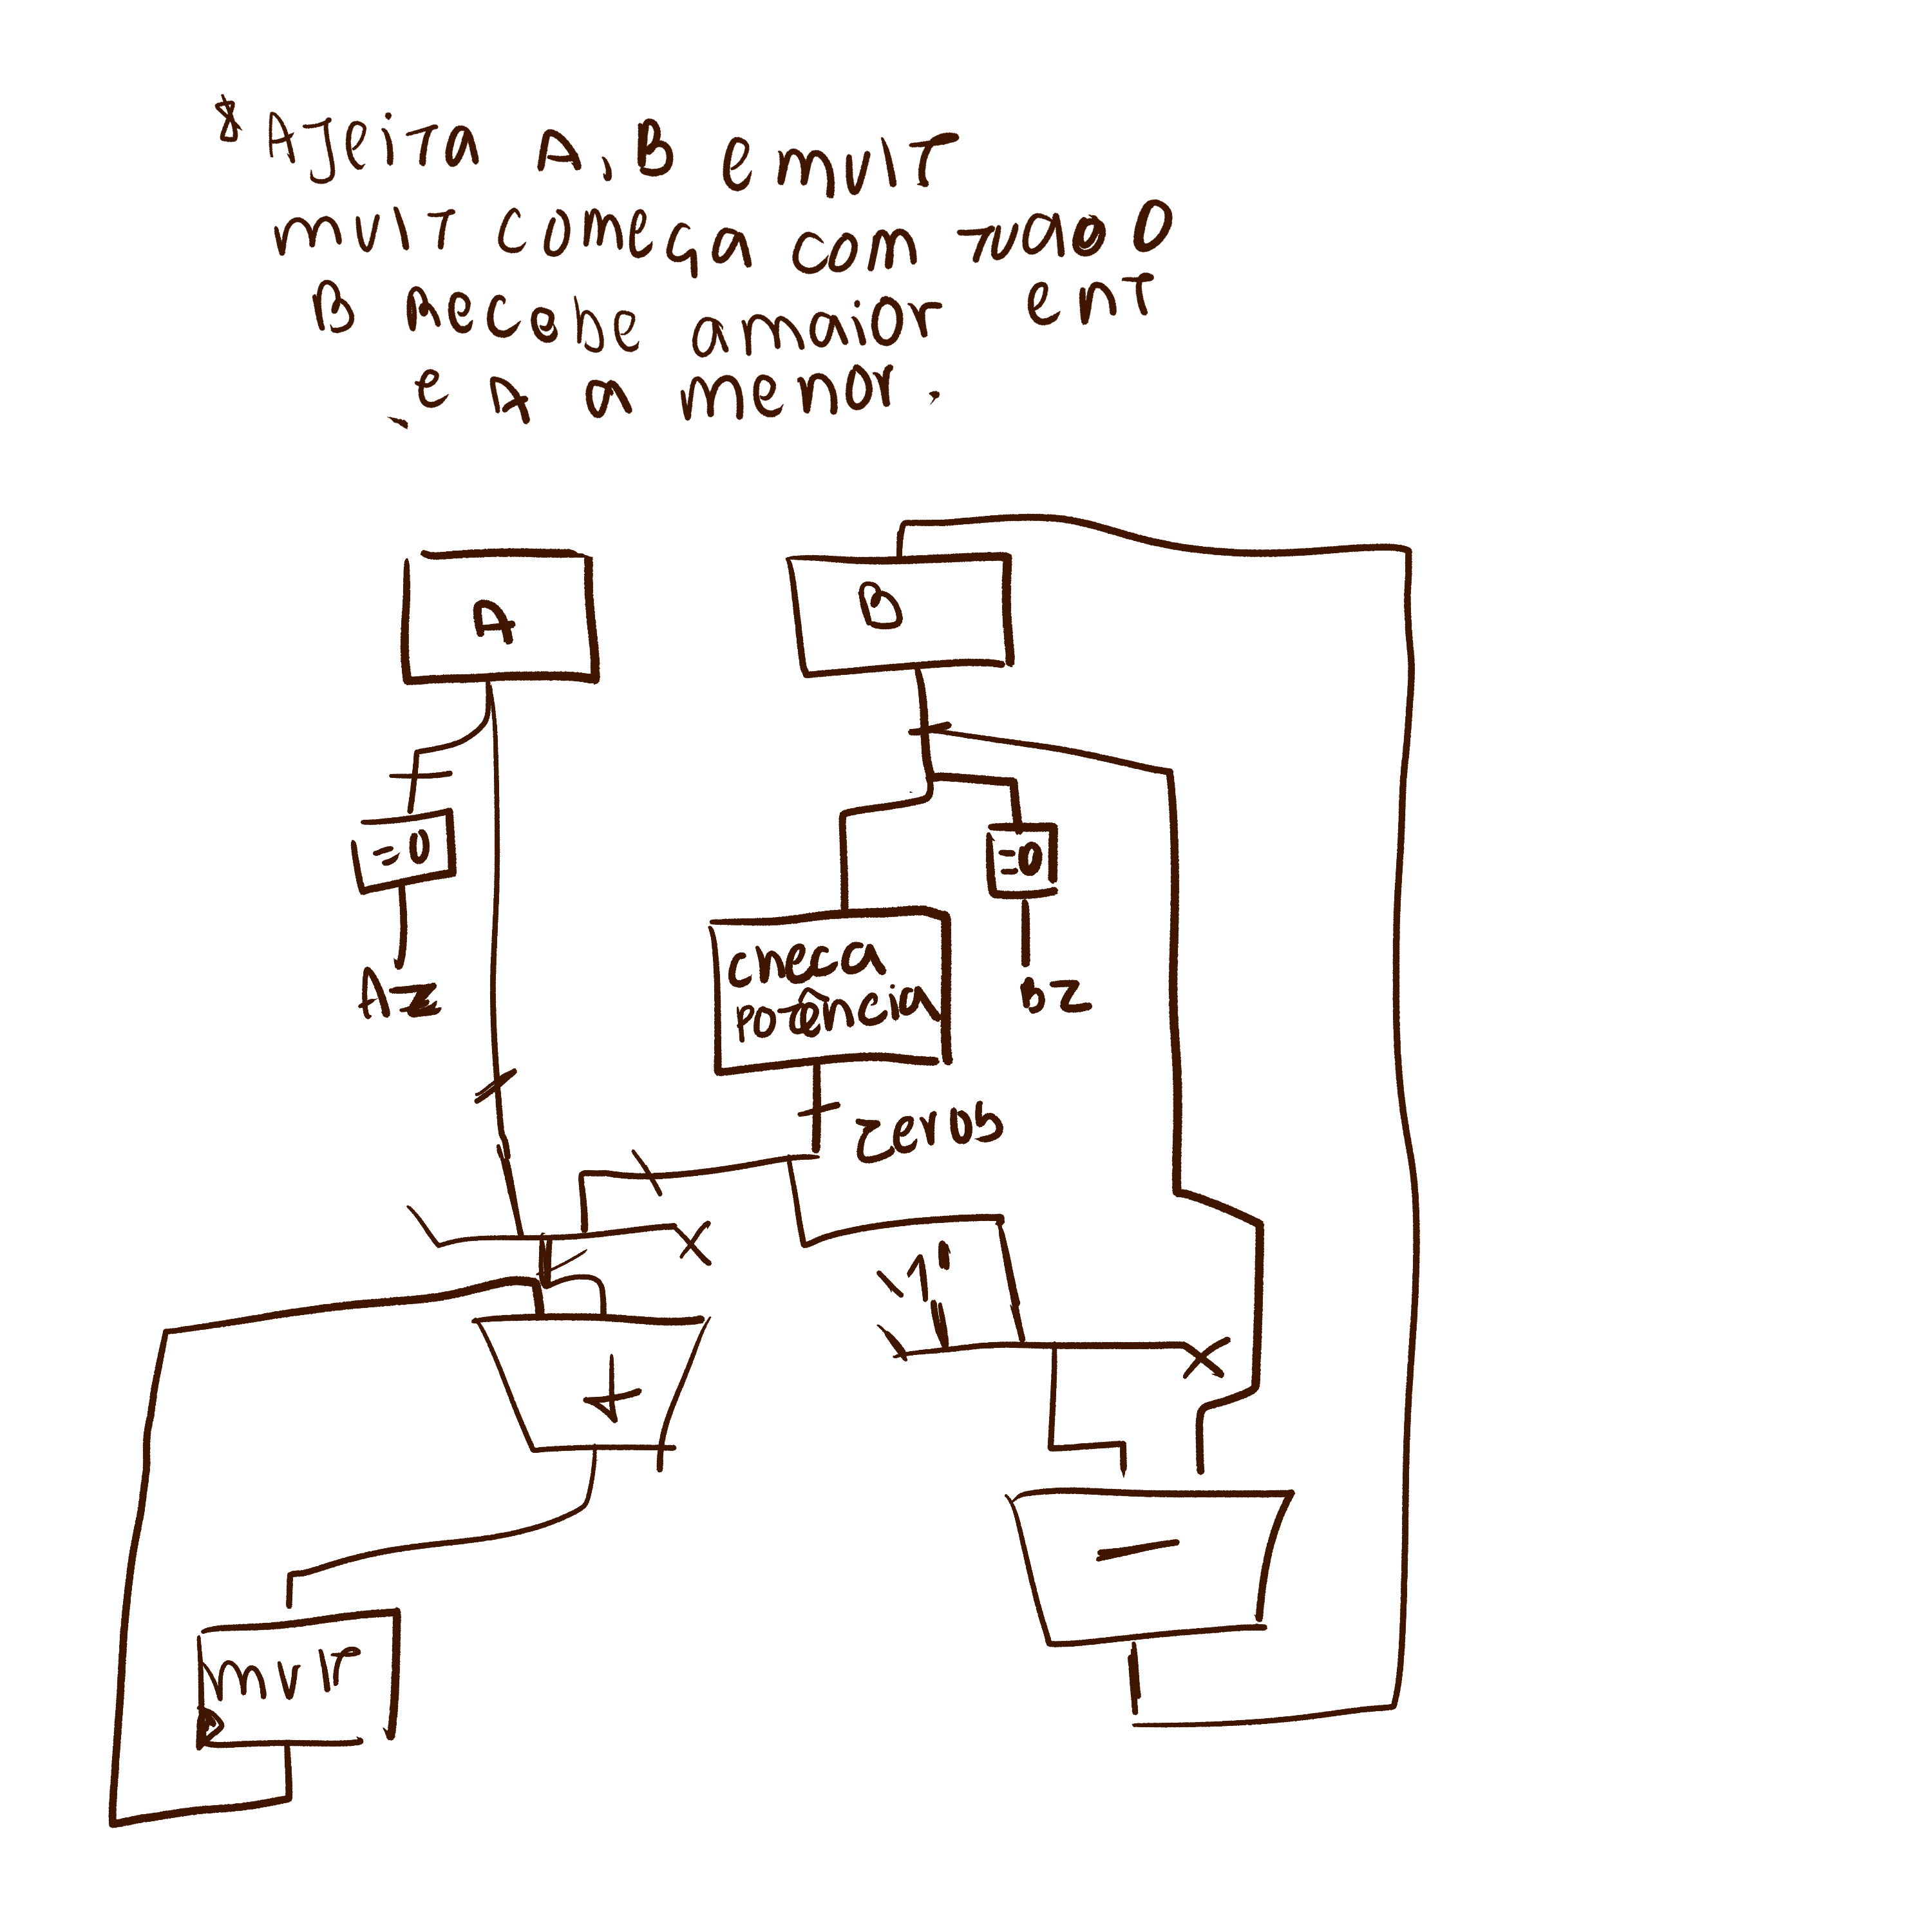 * Ajeita A, B e mult
mult começa com tudo 0
B recebe a maior ent
e A a menor.
A
B
=0
=0
checa
potência
Az
bz
zerob
"1"
+
−
mult